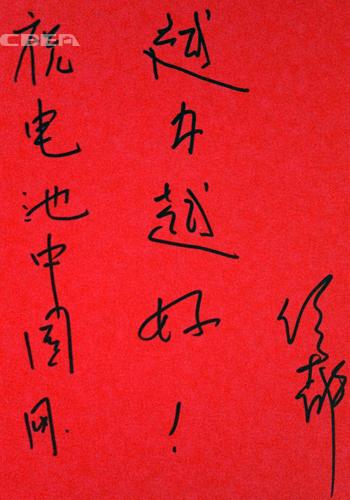 CBEA
祝电池中国网
越办越好!